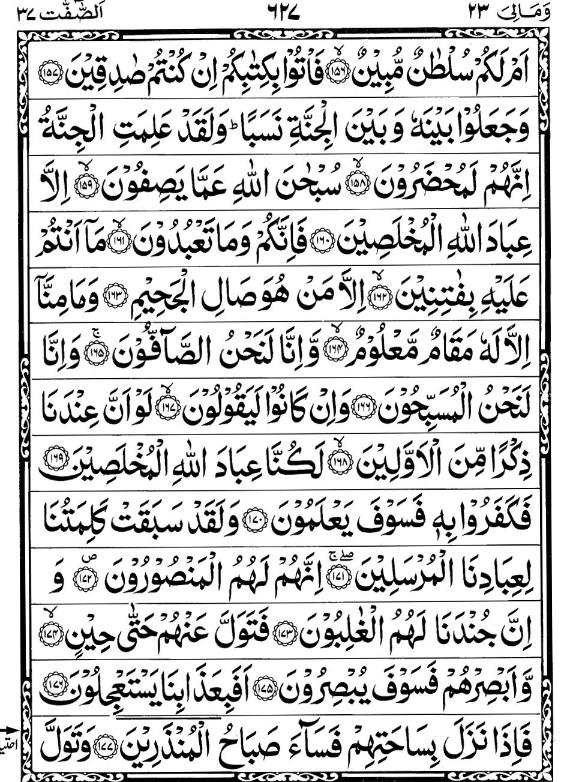 وَمَالِیَ ٢٣ ٦٢٧ اَلصّٰٓفّٰت ٣٧
اَمْ لَكُمْ سُلْطٰنٌ مُّبِیْنٌ ۙ﴿١٥٦﴾ فَاْتُوْا بِكِتٰبِكُمْ اِنْ كُنْتُمْ صٰدِقِیْنَ ﴿١٥٧﴾
وَجَعَلُوْا بَیْنَهٗ وَبَیْنَ الْجِنَّةِ نَسَبًا ؕ وَلَقَدْ عَلِمَتِ الْجِنَّةُ
اِنَّهُمْ لَمُحْضَرُوْنَ ۙ﴿١٥٨﴾ سُبْحٰنَ اللّٰهِ عَمَّا یَصِفُوْنَ ۙ﴿١٥٩﴾ اِلَّا
عِبَادَ اللّٰهِ الْمُخْلَصِیْنَ ﴿١٦٠﴾ فَاِنَّكُمْ وَمَا تَعْبُدُوْنَ ۙ﴿١٦١﴾ مَاۤ اَنْتُمْ
عَلَیْهِ بِفٰتِنِیْنَ ۙ﴿١٦٢﴾ اِلَّا مَنْ هُوَ صَالِ الْجَحِیْمِ ﴿١٦٣﴾ وَمَا مِنَّاۤ
اِلَّا لَهٗ مَقَامٌ مَّعْلُوْمٌ ۙ﴿١٦٤﴾ وَّاِنَّا لَنَحْنُ الصَّآفُّوْنَ ۚ﴿١٦٥﴾ وَاِنَّا
لَنَحْنُ الْمُسَبِّحُوْنَ ﴿١٦٦﴾ وَاِنْ كَانُوْا لَیَقُوْلُوْنَ ۙ﴿١٦٧﴾ لَوْ اَنَّ عِنْدَنَا
ذِكْرًا مِّنَ الْاَوَّلِیْنَ ۙ﴿١٦٨﴾ لَكُنَّا عِبَادَ اللّٰهِ الْمُخْلَصِیْنَ ﴿١٦٩﴾
فَكَفَرُوْا بِهٖ فَسَوْفَ یَعْلَمُوْنَ ﴿١٧٠﴾ وَلَقَدْ سَبَقَتْ كَلِمَتُنَا
لِعِبَادِنَا الْمُرْسَلِیْنَ ۚۖ﴿١٧١﴾ اِنَّهُمْ لَهُمُ الْمَنْصُوْرُوْنَ ۪﴿١٧٢﴾ وَ
اِنَّ جُنْدَنَا لَهُمُ الْغٰلِبُوْنَ ﴿١٧٣﴾ فَتَوَلَّ عَنْهُمْ حَتّٰی حِیْنٍ ۙ﴿١٧٤﴾
وَّاَبْصِرْهُمْ فَسَوْفَ یُبْصِرُوْنَ ﴿١٧٥﴾ اَفَبِعَذَابِنَا یَسْتَعْجِلُوْنَ ﴿١٧٦﴾
فَاِذَا نَزَلَ بِسَاحَتِهِمْ فَسَآءَ صَبَاحُ الْمُنْذَرِیْنَ ﴿١٧٧﴾ وَتَوَلَّ